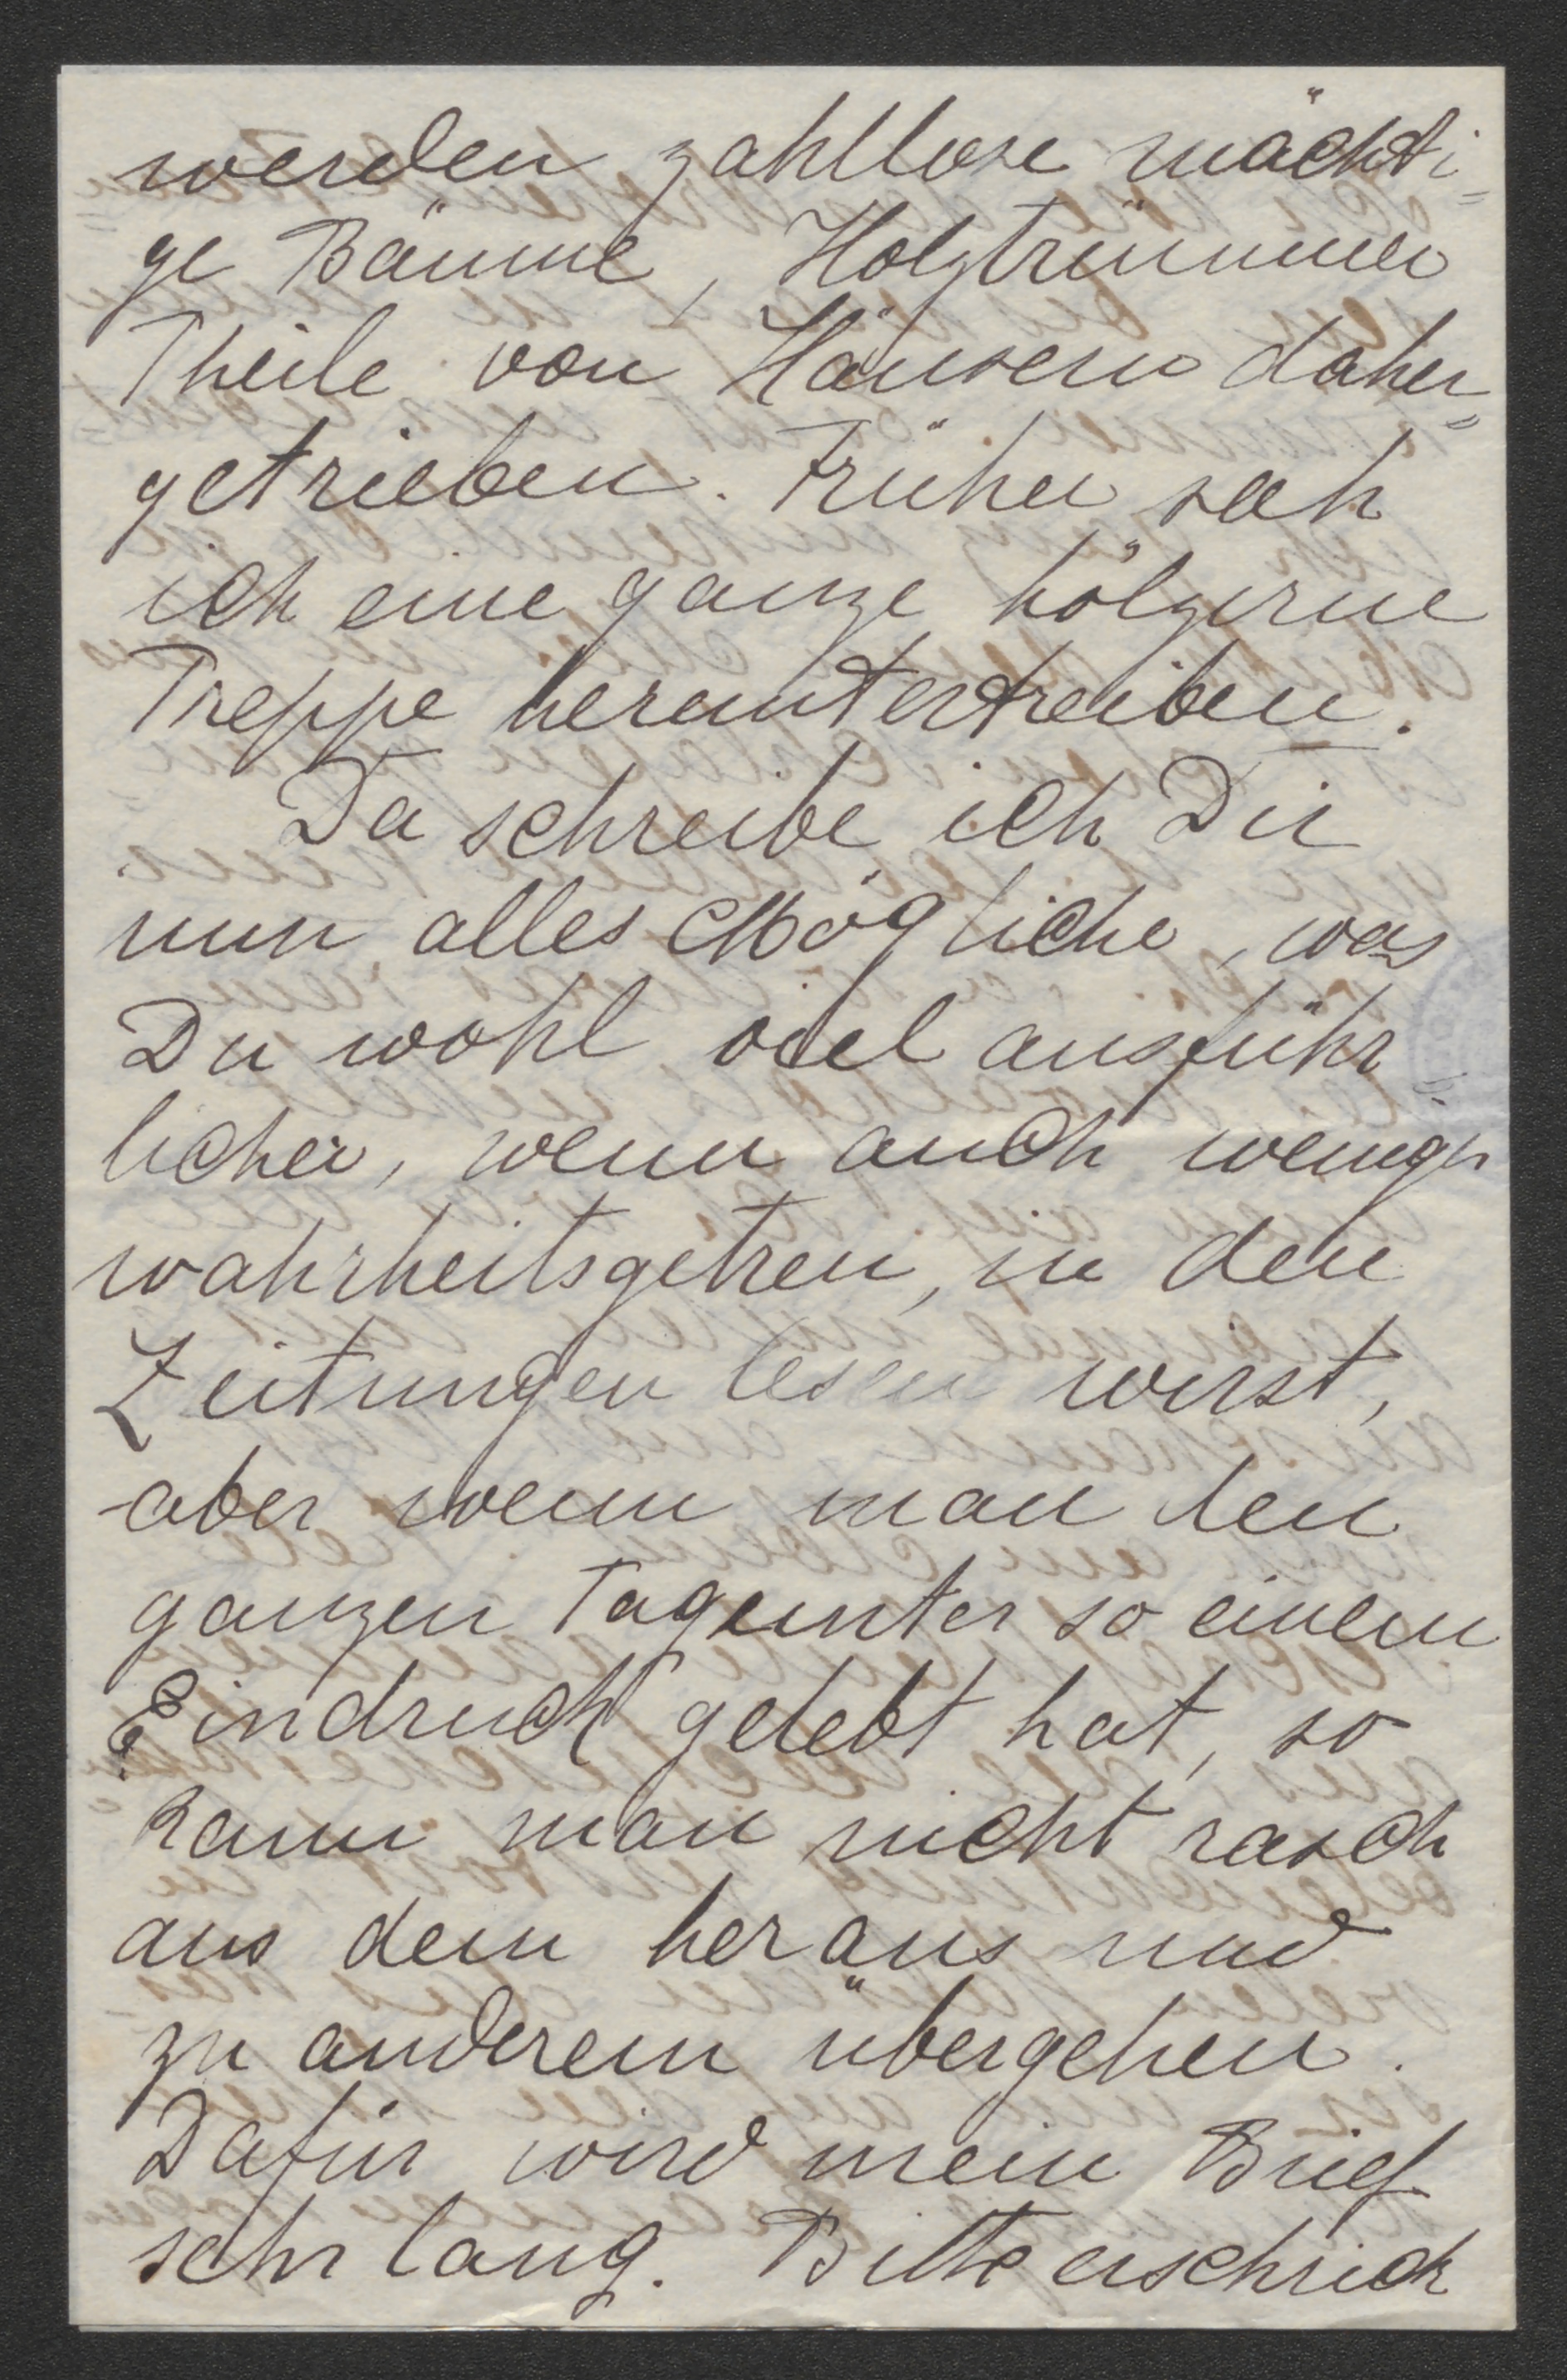 werden zahllose mächti=
ge Bäume, Holztrümmer
Theile von Häusern daher=
getrieben. Früher sah
ich eine ganze hölzerne
Treppe heruntertreiben.
Da schreibe ich Dir
nun alles Mögliche, was
Du wohl viel ausführ
licher, wenn auch weniger
wahrheitsgetreu, in den
Zeitungen lesen wirst,
aber wenn man den
ganzen Tag unter so einem
Eindruck gelebt hat, so
kann man nicht rasch
aus dem heraus und
zu anderem übergehen.
Dafür wird mein Brief
sehr lang. Bitte erschrick